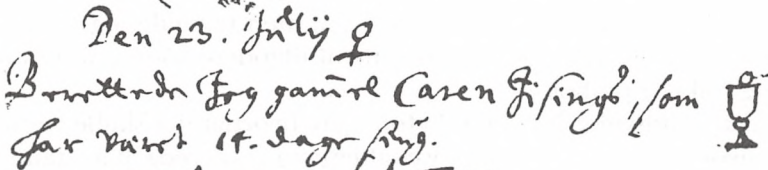 Den 23. Julij ♀
Berettede Jeg gam̄el Caren Jisings, som
har været 14. dage siug.